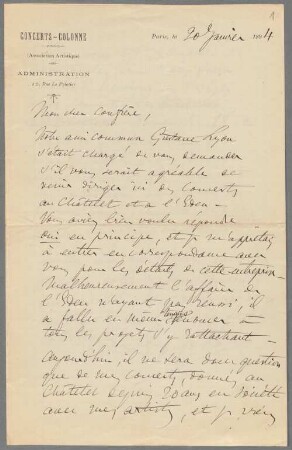 1
CONCERTS-COLONNE
Association Artistique
ADMINISTRATION
Paris, le 20 Janvier 1894
Mon cher Confrère,
Notre ami commun Gustave Lyon
s'était chargé de vous demander
s'il vous serait agréable de
venir diriger un de concerts
au Châtelet et à l'Eden —
Vous aviez bien voulu répondre
oui en principe, et je m'apprêtais
à entrer en correspondance avec
vous pour les détails de cette entreprise.
Malheureusement l'affaire de
l'Eden n'ayant pas réussi, il
a fallu en même temps renoncer à
tous les projets s'y rattachant —
Aujourd'hui, il ne sera donc question
que de mes concerts, donnés au
Châtelet depuis 20 ans en Société
avec mes artistes, et je viens